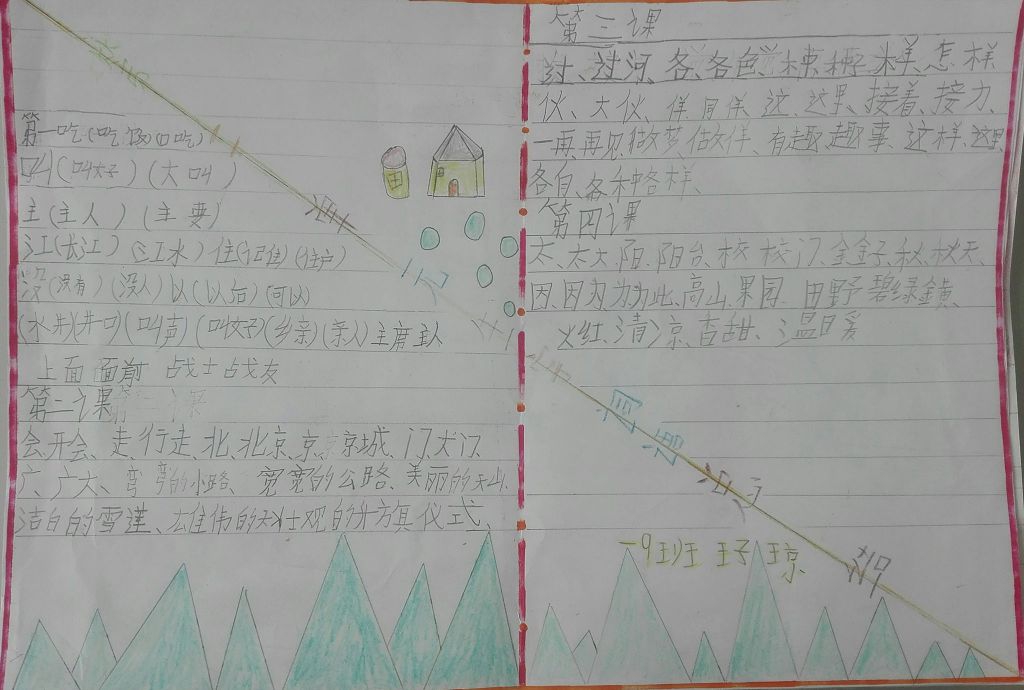 第一吃(吃饭)(口吃)
叫(叫太子)(大叫)
主(主人)(主要)
江(长江)(江水)住(记住)(住户)
没(没有)(没人)以(以后)(可以)
(水井)(井口)(叫声)(叫女子)(乡亲)(亲人)主席主人
上面 面前 战士战友
第二课
会、开会、走、行走、北、北京、京、京城、门、大门
广、广大、弯弯的小路、宽宽的公路、美丽的天山、
洁白的雪莲、雄伟的天 壮观的升旗仪式、
第三课
过、过河、各、各色、种子、样、怎样
伙、大伙、伴、同伴、这、这里、接着、接力、
一再、再见、做梦、做伴、有趣、趣事、这样、这里
各自、各种各样、
第四课
太、太太、阳、阳台、校、校门、金、金子、秋、秋天、
因、因为、为、为此、高山、果园、田野、碧绿
火红、清凉、香甜、温暖
一9班 王子琼